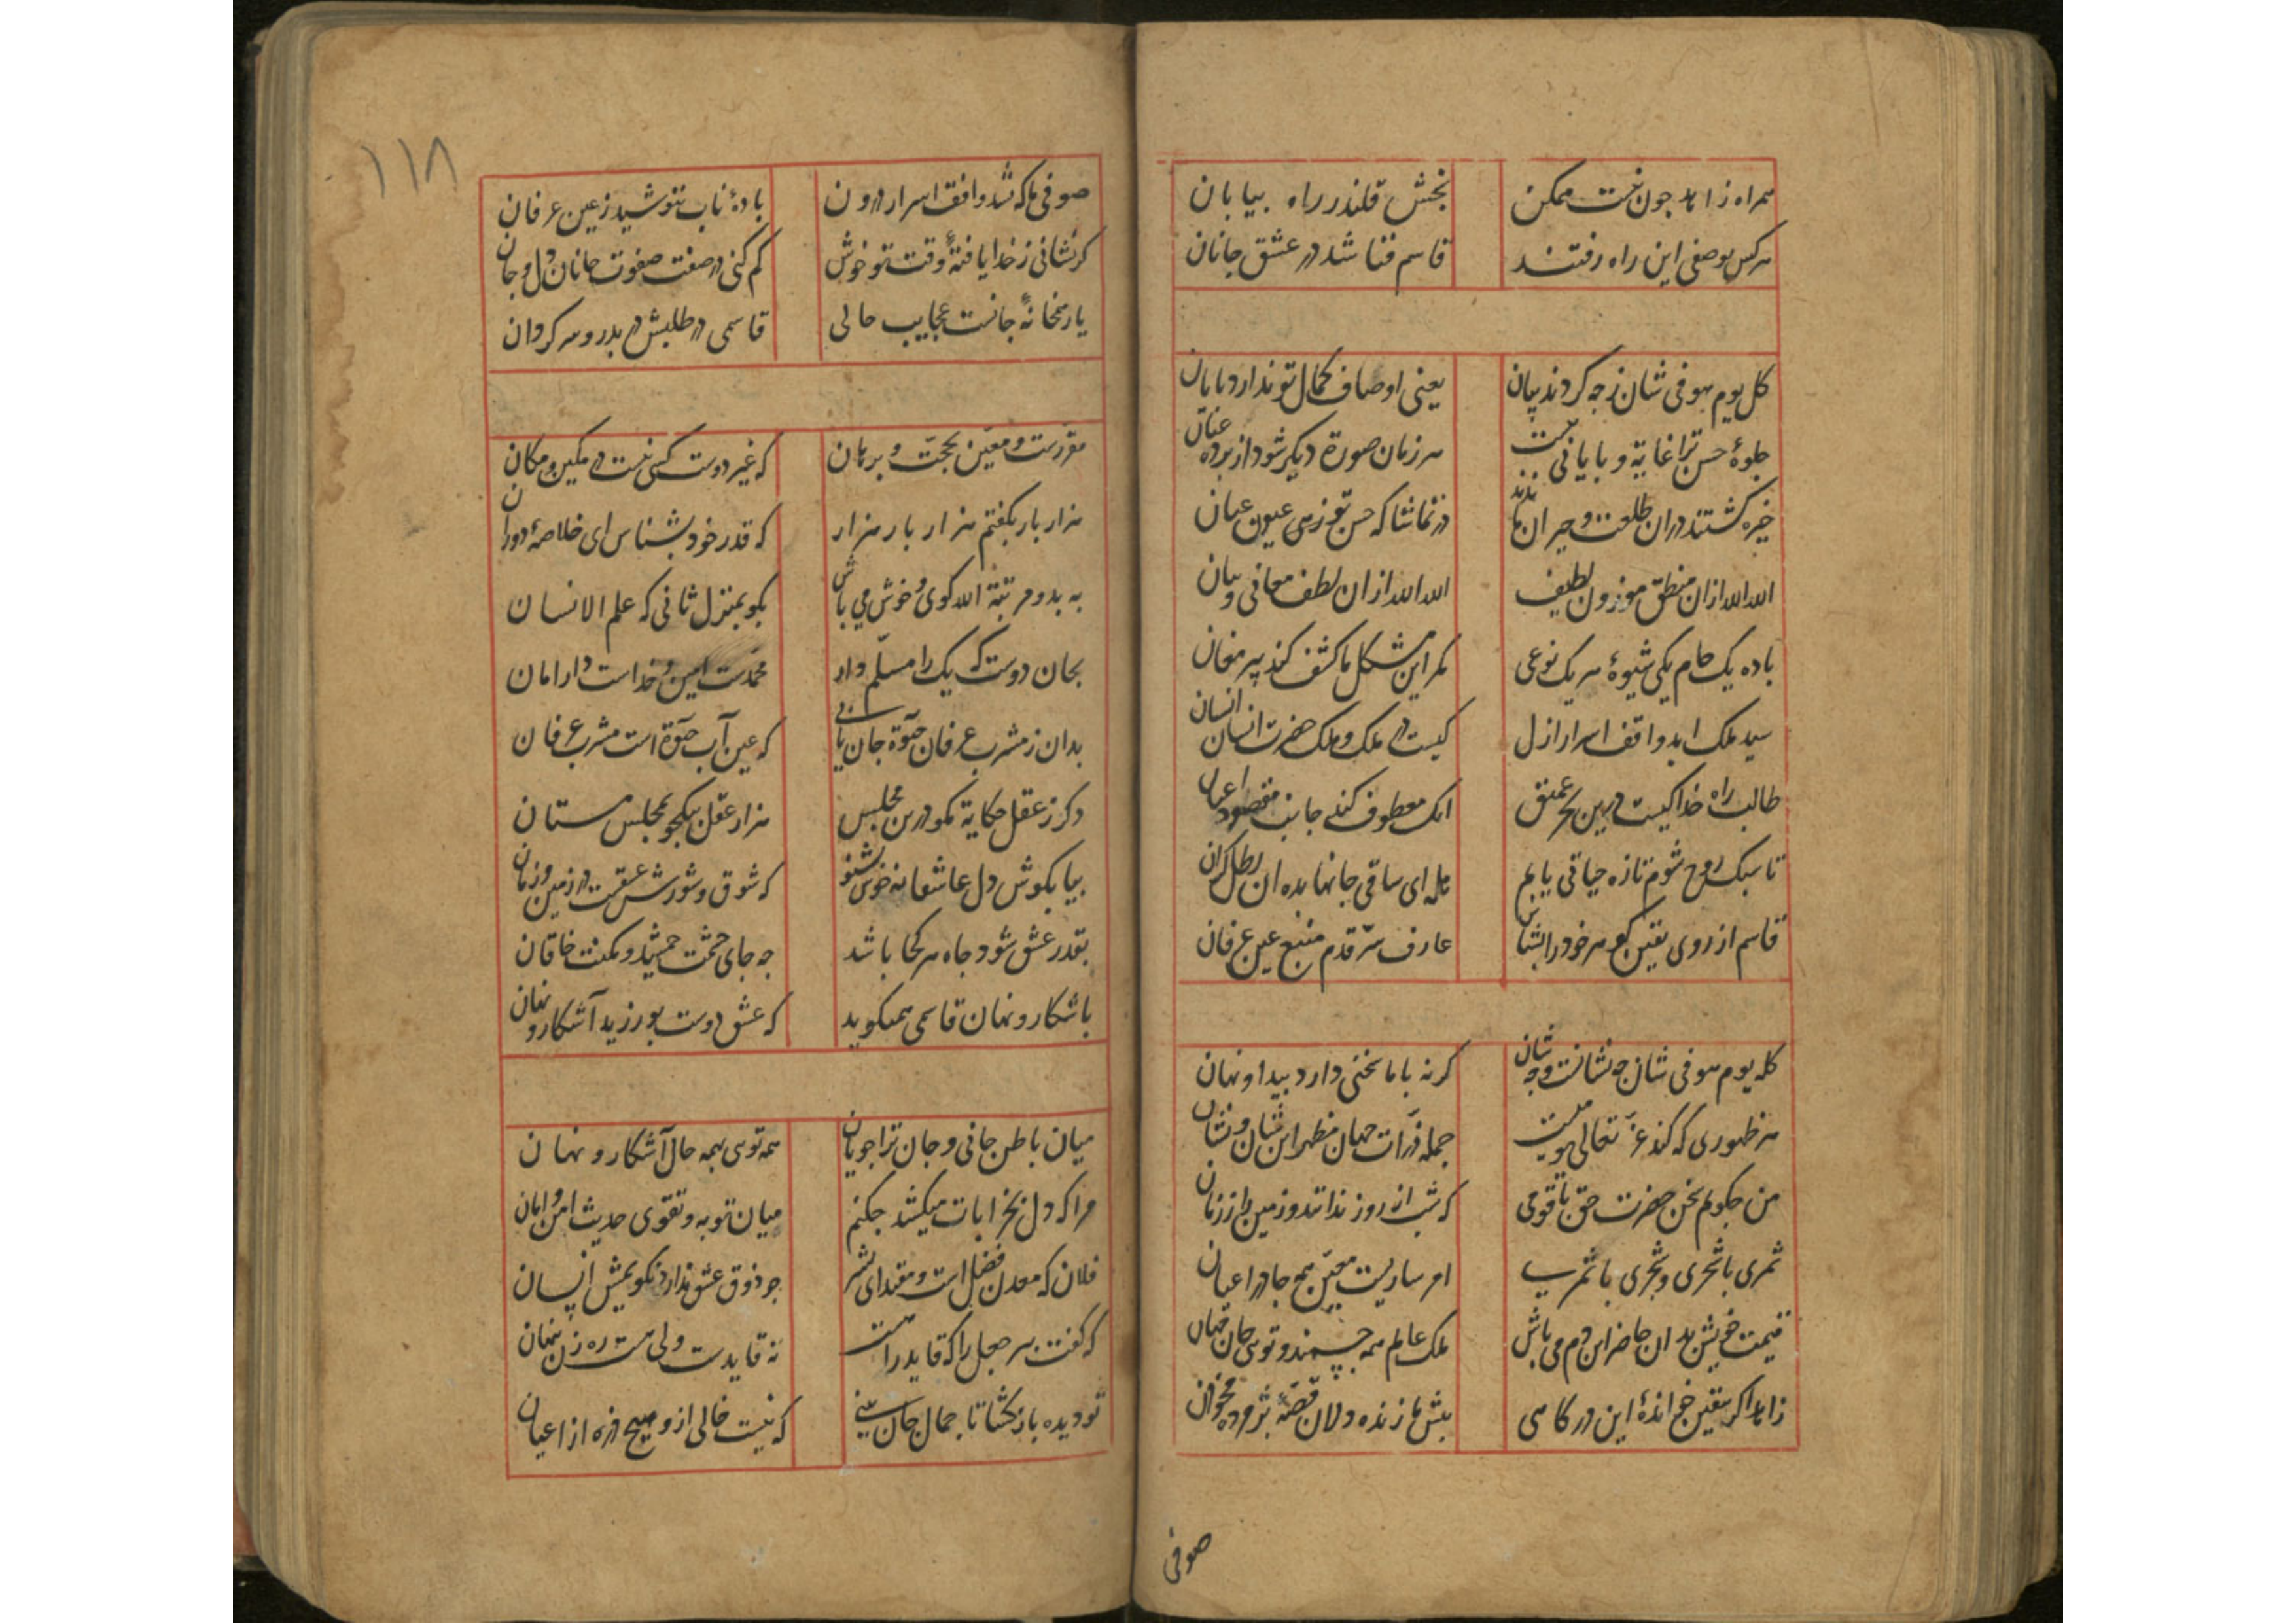 همراه زاهد جون نیست ممکن بخش قلندر راه بیابان
هرکس بوصفی این راه رفتند قاسم فنا شد در عشق جانان
کل یوم هو فی شان زجه کردند بیان یعنی اوصاف کمال تو ندارد پایان
جلوهٔ حسن ترا غایة و پایانی نیست هر زمان صورة دیکر شود از پرده عیان
خیره کشتند در ان طلعت و حیران ماندند در تماشا که حسن تو عیون عیان
الله الله ازان منطق موزون لطیف الله الله ازان لطف معانی و بیان
باده یک جام یکی شیوهٔ هر یک نوعی مکر این مشکل ما کشف کند پیر مغان
سید ملک ابد واقف اسرار ازل کیست در ملک و ملک حضرت انسان انسان
طالب راه خدا کیست درین بحر عمیق انک معطوف کند جانب مقصود عنان
تا سبک روح شوم تازه حیاتی یابم هله ای ساقی جانها بده ان رطل کران
قاسم از روی یقین کوهر خود را بشناس عارف سرّ قدم منبع عین عرفان
کل یوم هو فی شان جه نشانست و جه شان کرنه با ما سخنی دارد پیدا و نهان
هر ظهوری که کند عزّ تعالی هویت جمله ذرّات جهان مظهر این شان و نشان
من جکویم سخن حضرت حق با قومی که شب از روز ندانند و زمین را ز زمان
ثمری با شجری و شجری با ثمریست امر ساریست معیّن همه جا در اعیان
قیمت خویش بدان حاضر این دم می باش ملک عالم همه جسمند و توی جان جهان
زاهد اکر بیقین خواندهٔ این در کاهی پیش ما زنده دلان قصهٔ پژمرده مخوان
صوفی
۱۱۸
صوفی ما که شد واقف اسرار درون بادهٔ ناب بنوشید ز عین عرفان
کر نشانی ز خدا یافتهٔ وقت تو خوش کم کنی در صفت صفوت جانان دل و جان
یار همخانهٔ جانست عجایب حالی قاسمی در طلبش در بدر و سرکردان
مقرّرست و معیّن بحجّت و برهان که غیر دوست کسی نیست در مکین و مکان
هزار بار بکفتم هزار بار هزار که قدر خود بشناس ای خلاصهٔ دوران
به بدو مرتبة الله کوی و خوش می باش بکو بمنزل ثانی که علم الانسان
بجان دوست که یک را مسلّم دار محمّدست امین و خداست دار امان
بدان ز مشرب عرفان حیٰوة جان یابی که عین آب حیٰوة است مشرب عرفان
دکر ز عقل حکایة مکو درین مجلس هزار عقل بیکجو بمجلس مستان
بیا بکوش دل عاشقانه خوش بشنو که شوق و شورش عشقست در زمین و زمان
بقدر عشق شود جاه هر کجا باشد جه جای حشمت جمشید و مکنت خاقان
باشکار و نهان قاسمی همیکوید که عشق دوست بورزید آشکار و نهان
میان باطن جانی و جان ترا جویان همه توی بهمه حال آشکار و نهان
مرا که دل بخرابات میکشد جکنم میان توبه و تقوی حدیث امن و امان
فلان که معدن فضل است و مقتدای بشر جو ذوق عشق ندارد نکویمش انسان
که کفت بر جمل را که قاید راهست نه قایدست ولی هست ره زن پنهان
تو دیده باز کشا تا جمال جان بینی که نیست خالی ازو هیچ ذره از اعیان